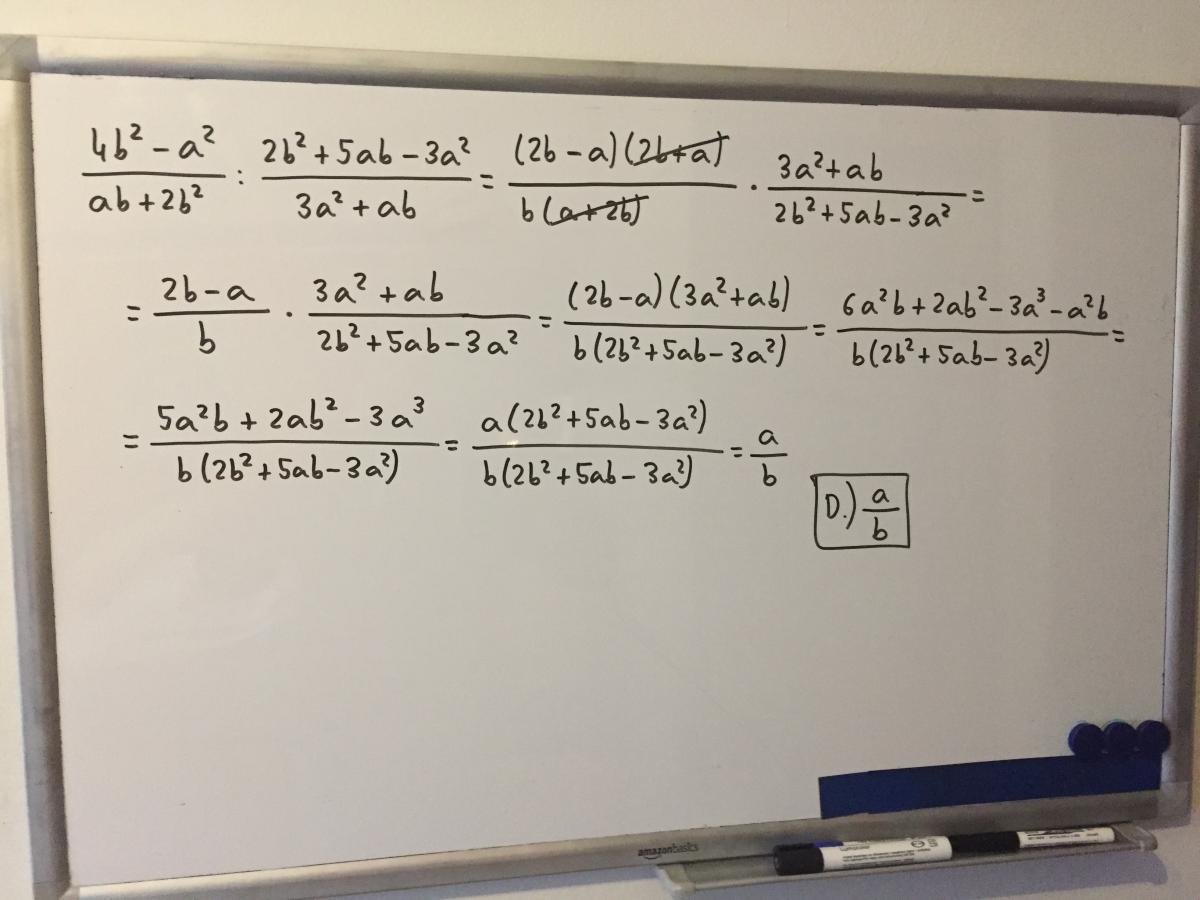 (4b² − a²)/(ab + 2b²) : (2b² + 5ab − 3a²)/(3a² + ab) = ((2b − a)(2b + a))/(b(a + 2b)) · (3a² + ab)/(2b² + 5ab − 3a²) =
= (2b − a)/b · (3a² + ab)/(2b² + 5ab − 3a²) = ((2b − a)(3a² + ab))/(b(2b² + 5ab − 3a²)) = (6a²b + 2ab² − 3a³ − a²b)/(b(2b² + 5ab − 3a²)) =
= (5a²b + 2ab² − 3a³)/(b(2b² + 5ab − 3a²)) = (a(2b² + 5ab − 3a²))/(b(2b² + 5ab − 3a²)) = a/b
D.) a/b
amazonbasics